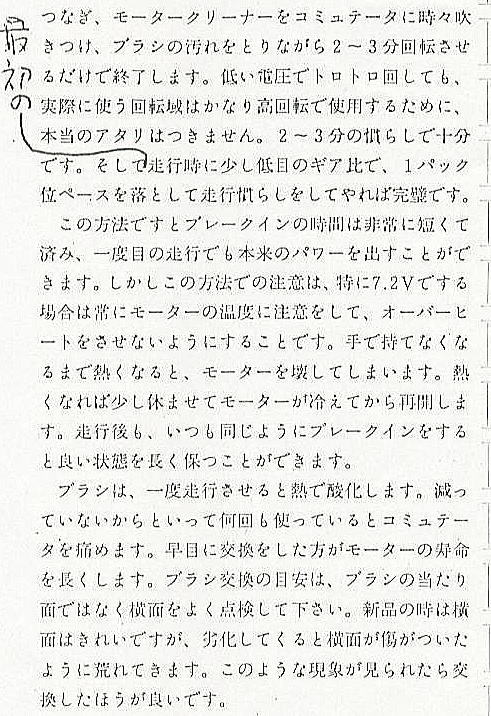 つなぎ、モータークリーナーをコミュテータに時々吹
きつけ、ブラシの汚れをとりながら2〜3分回転させ
るだけで終了します。低い電圧でトロトロ回しても、
実際に使う回転域はかなり高回転で使用するために、
本当のアタリはつきません。2〜3分の慣らしで十分
です。そして走行時に少し低目のギア比で、1パック
最初の
位ペースを落として走行慣らしをしてやれば完璧です。
この方法ですとブレークインの時間は非常に短くて
済み、一度目の走行でも本来のパワーを出すことがで
きます。しかしこの方法での注意は、特に7.2Vでする
場合は常にモーターの温度に注意をして、オーバーヒ
ートをさせないようにすることです。手で持てなくな
るまで熱くなると、モーターを壊してしまいます。熱
くなれば少し休ませてモーターが冷えてから再開しま
す。走行後も、いつも同じようにブレークインをする
と良い状態を長く保つことができます。
ブラシは、一度走行させると熱で酸化します。減っ
ていないからといって何回も使っているとコミュテー
タを痛めます。早目に交換をした方がモーターの寿命
を長くします。ブラシ交換の目安は、ブラシの当たり
面ではなく横面をよく点検して下さい。新品の時は横
面はきれいですが、劣化してくると横面が傷がついた
ように荒れてきます。このような現象が見られたら交
換したほうが良いです。